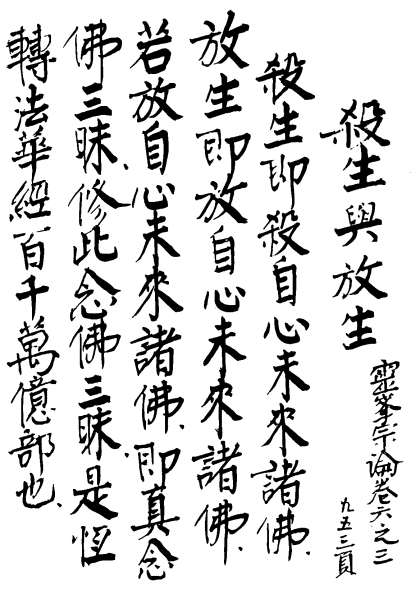 殺生與放生
靈峯宗論卷六之三
九五三頁
殺生即殺自心未來諸佛、
放生即放自心未來諸佛、
若放自心未來諸佛、即真念
佛三昧、修此念佛三昧、是恆
轉法華經百千萬億部也、